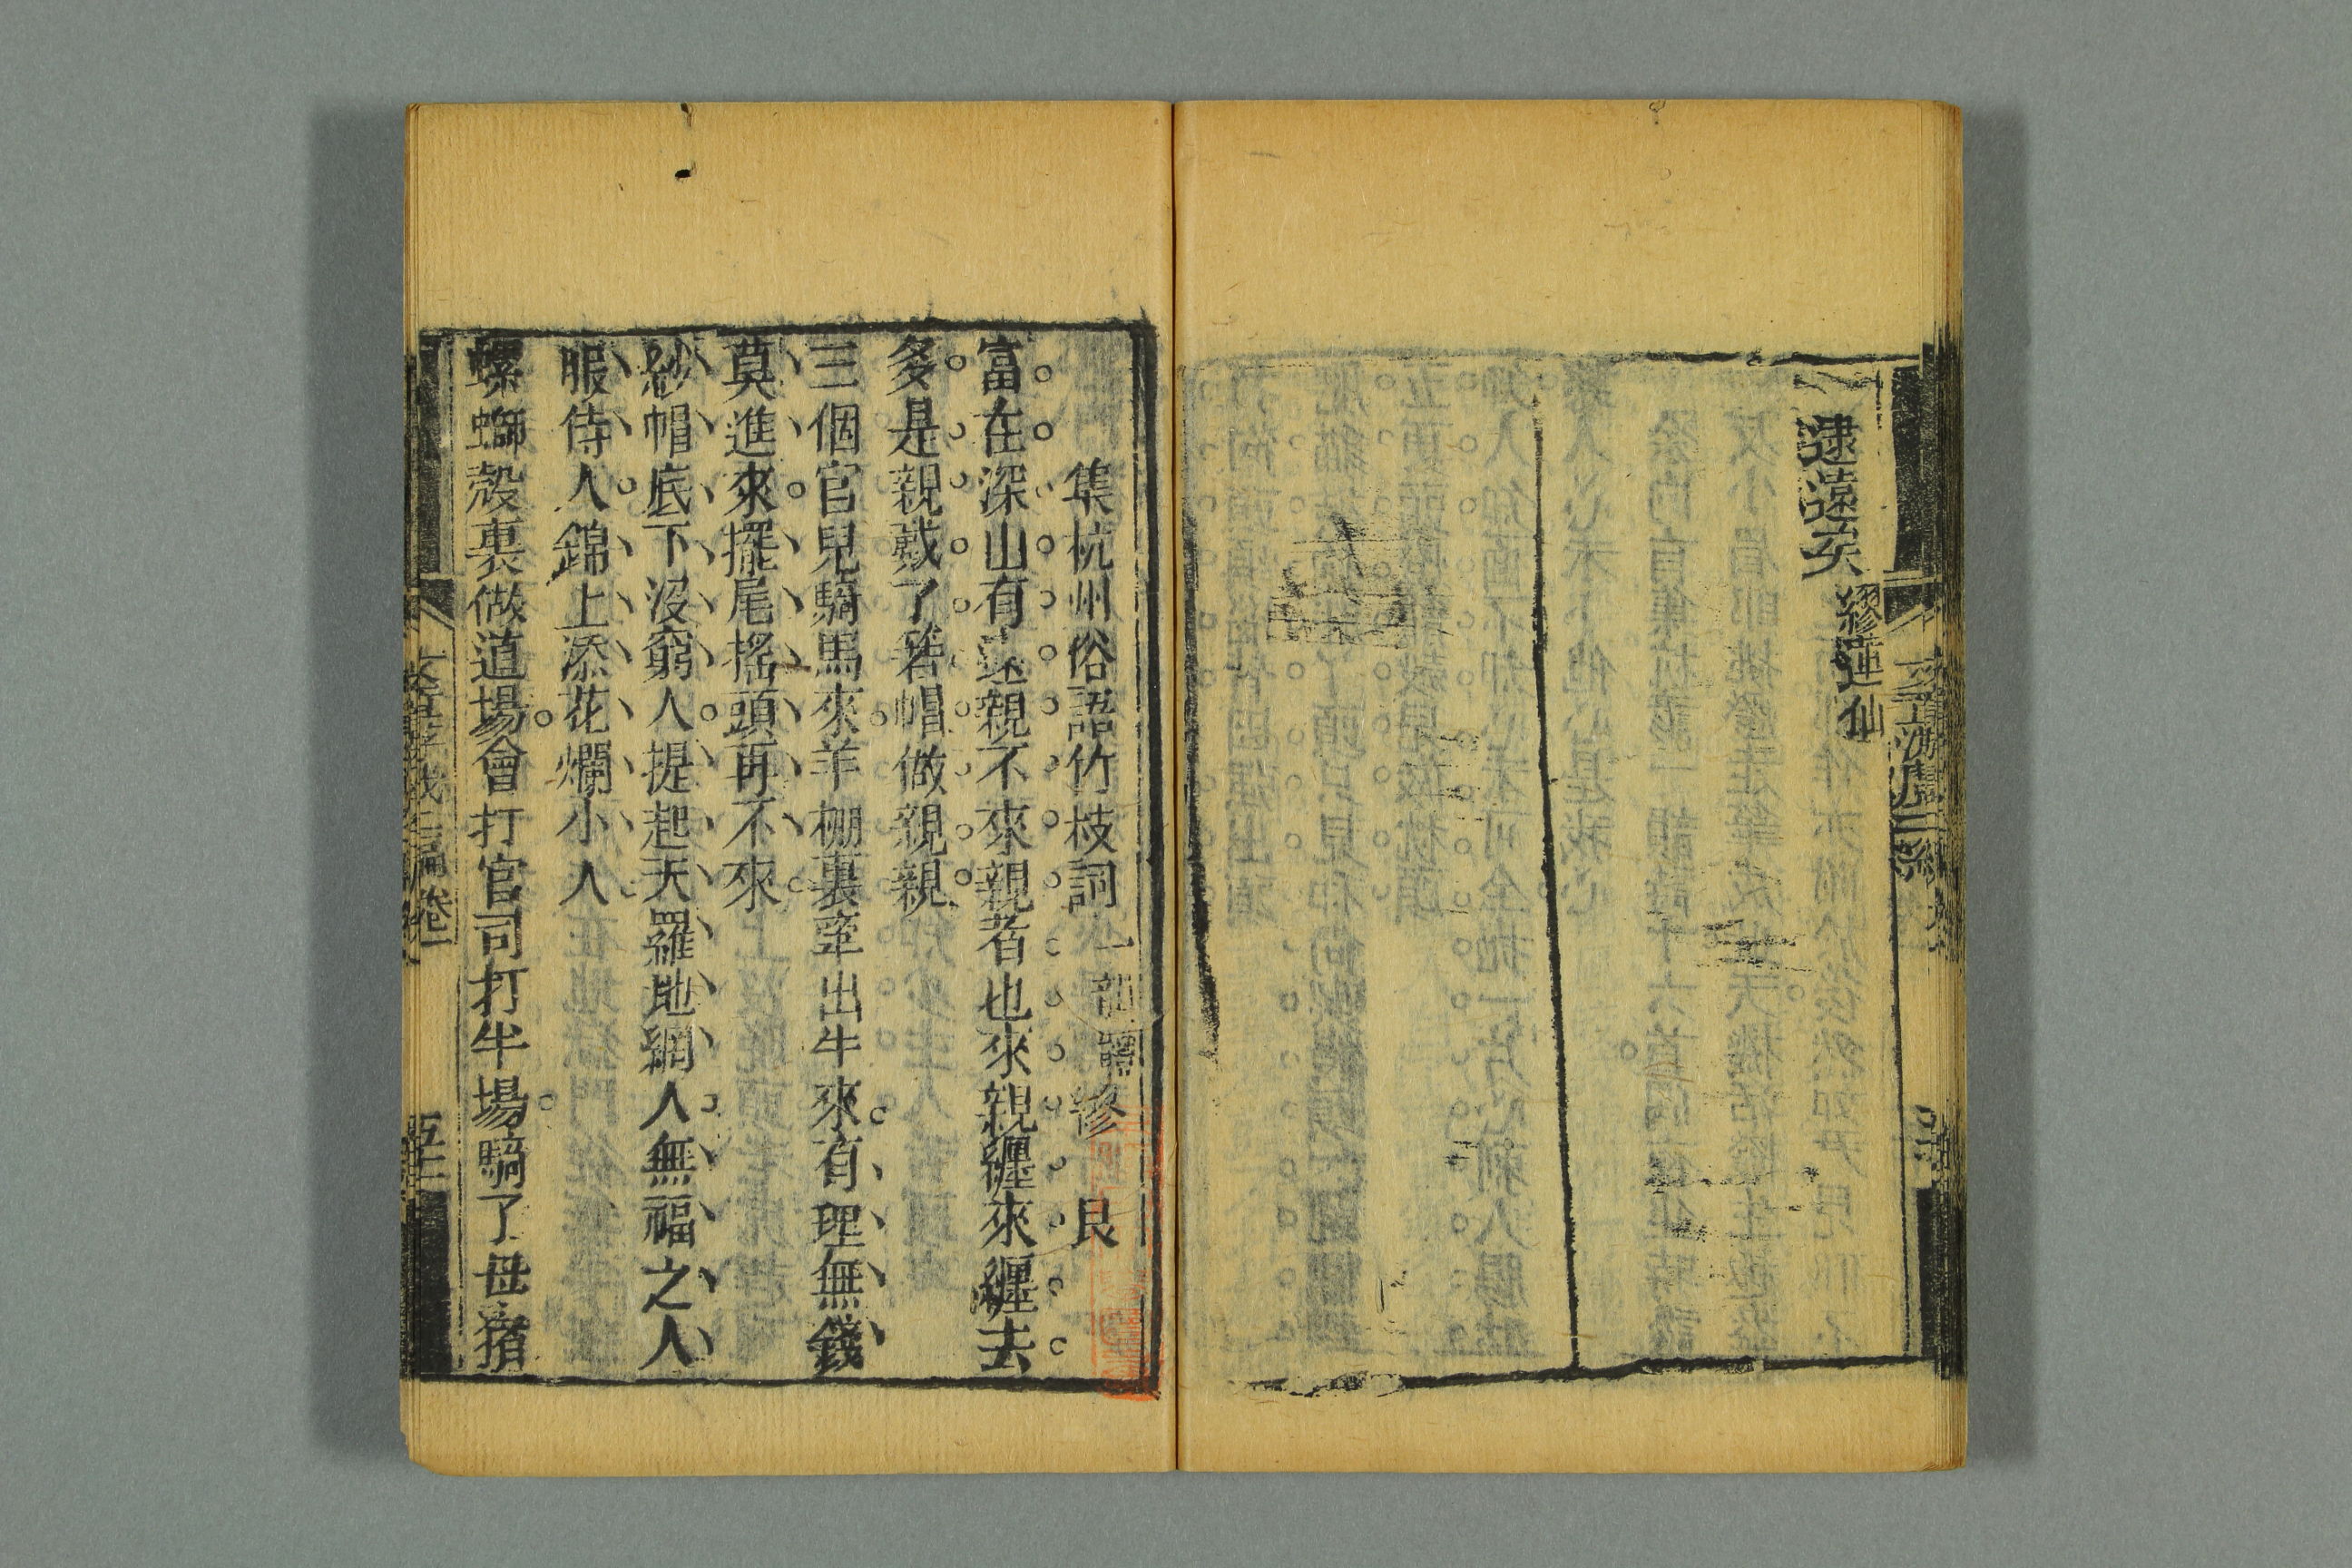 逮遠矣 繆蓮仙
集杭州俗語竹枝詞 一韻體 繆 艮
富在深山有遠親不來親者也來親纏來纏去
多是親戴了箬帽做親親
三個官兒騎馬來羊棚裏牽出牛來有理無錢
莫進來擺尾搖頭再不來
紗帽底下沒窮人提起天羅地網人無福之人
服侍人錦上添花爛小人
螺螄殼裏做道場會打官司打半場騎了母猪